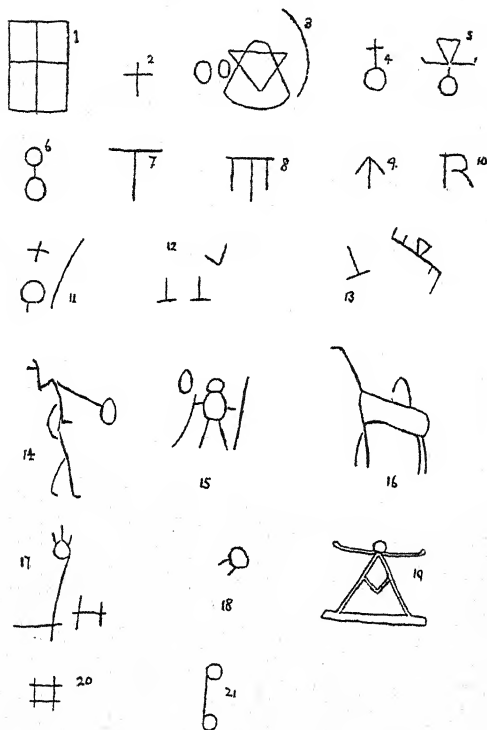 1 2 3 4. 5
6 7 8 9. 10
11 12 13
14 15 16
17 18 19
20 21